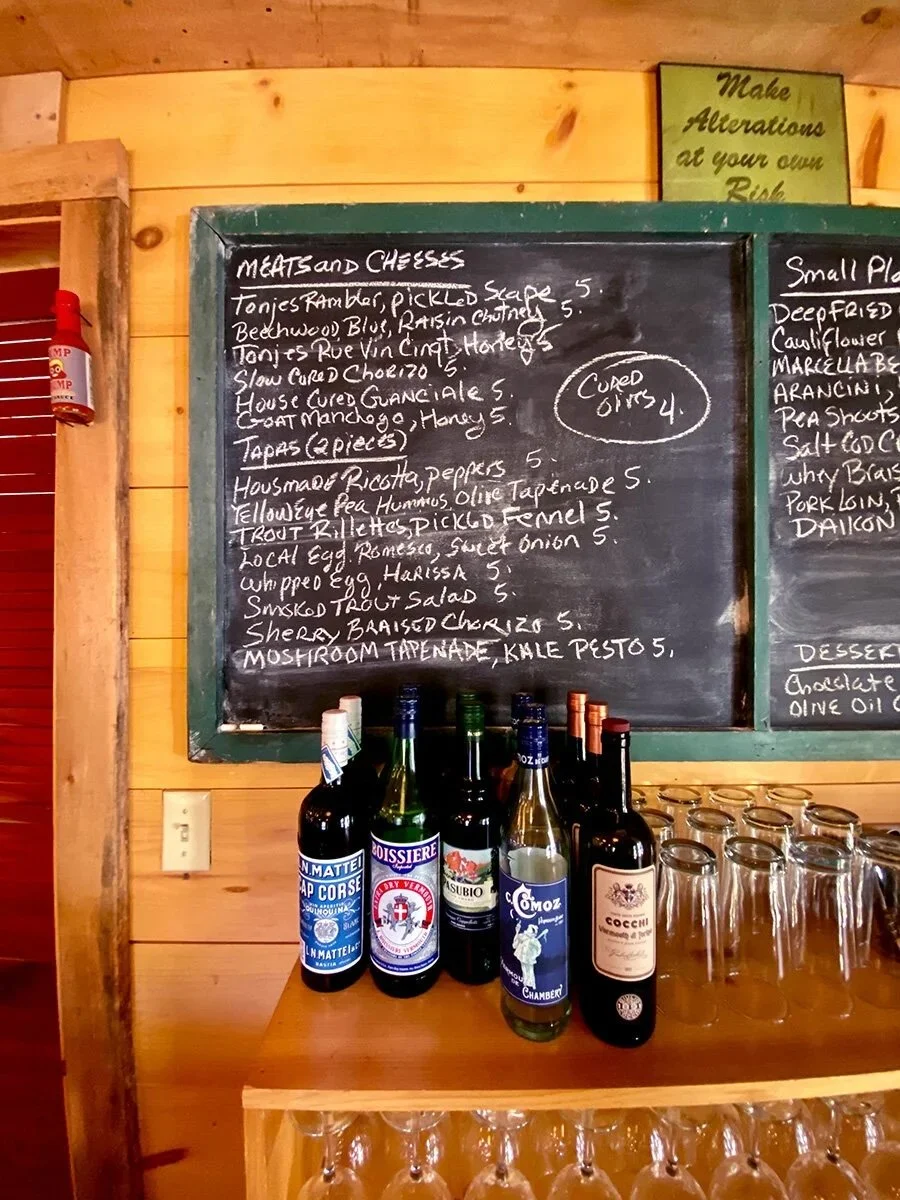 Make
Alterations
at your own
Risk
MEATS and CHEESES
Tonjes Rambler, pickled Scape 5.
Beechwood Blue, Raisin Chutney 5.
Tonjes Rue Vin Cinqt, Honey 5
Slow Cured Chorizo 5.
House Cured Guanciale 5.
Goat Manchego, Honey 5.
Cured
Olives 4.
Tapas (2 pieces)
Housmade Ricotta, Peppers 5.
Yellow Eye Pea Hummus, Olive Tapenade 5.
TROUT Rillettes, Pickled Fennel 5.
Local Egg Romesco, Sweet Onion 5.
Whipped Egg, Harissa 5.
Smoked Trout Salad 5.
Sherry Braised Chorizo 5.
MUSHROOM TAPENADE, KALE PESTO 5.
Small Pla
Deep FRIED
Cauliflower
MARCELLA BE
ARANCINI,
Pea Shoots
Salt Cod C
Whey Brais
Pork Loin, P
DAIKON
DESSER
Chocolate
OLIVE Oil C
L.N. MATTEI
CAP CORSE
QUINQUINA
L.N. MATTEI
BASTIA
BOISSIERE
Imported
DRY VERMOUTH
PASUBIO
COMOZ
COMOZ
VERMOUTH
DE
CHAMBÉRY
COCCHI
Vermouth di Torino